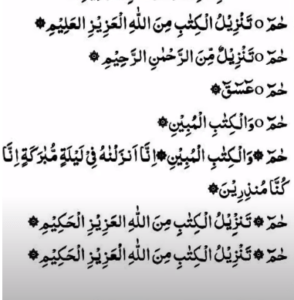 حٰمٓ ○ تَنْزِيْلُ الْكِتٰبِ مِنَ اللّٰهِ الْعَزِيْزِ الْعَلِيْمِ ۞
حٰمٓ ○ تَنْزِيْلٌ مِّنَ الرَّحْمٰنِ الرَّحِيْمِ ۞
حٰمٓ ○ عٓسٓقٓ ۞
حٰمٓ ○ وَالْكِتٰبِ الْمُبِيْنِ ۞
حٰمٓ ۞ وَالْكِتٰبِ الْمُبِيْنِ ۞ اِنَّاۤ اَنْزَلْنٰهُ فِيْ لَيْلَةٍ مُّبٰرَكَةٍ اِنَّا
كُنَّا مُنْذِرِيْنَ ۞
حٰمٓ ۞ تَنْزِيْلُ الْكِتٰبِ مِنَ اللّٰهِ الْعَزِيْزِ الْحَكِيْمِ ۞
حٰمٓ ۞ تَنْزِيْلُ الْكِتٰبِ مِنَ اللّٰهِ الْعَزِيْزِ الْحَكِيْمِ ۞